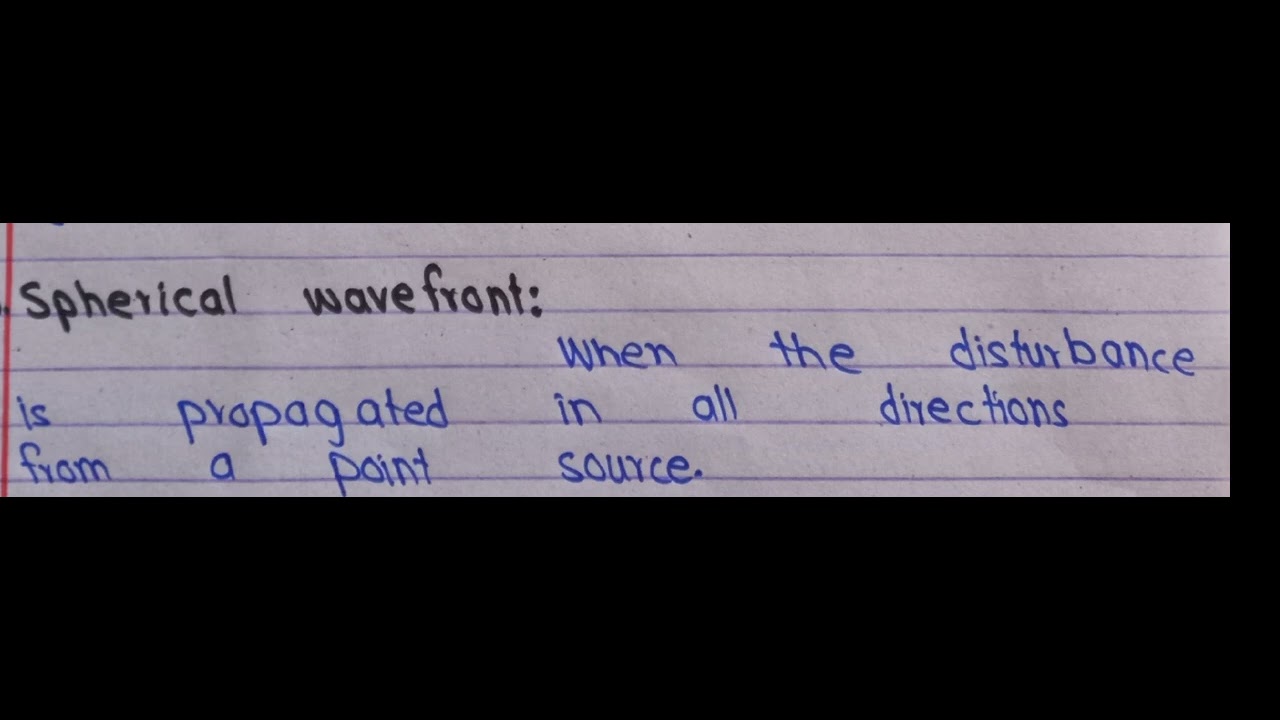 Spherical wavefront:
When the disturbance
is propagated in all directions
from a point source.